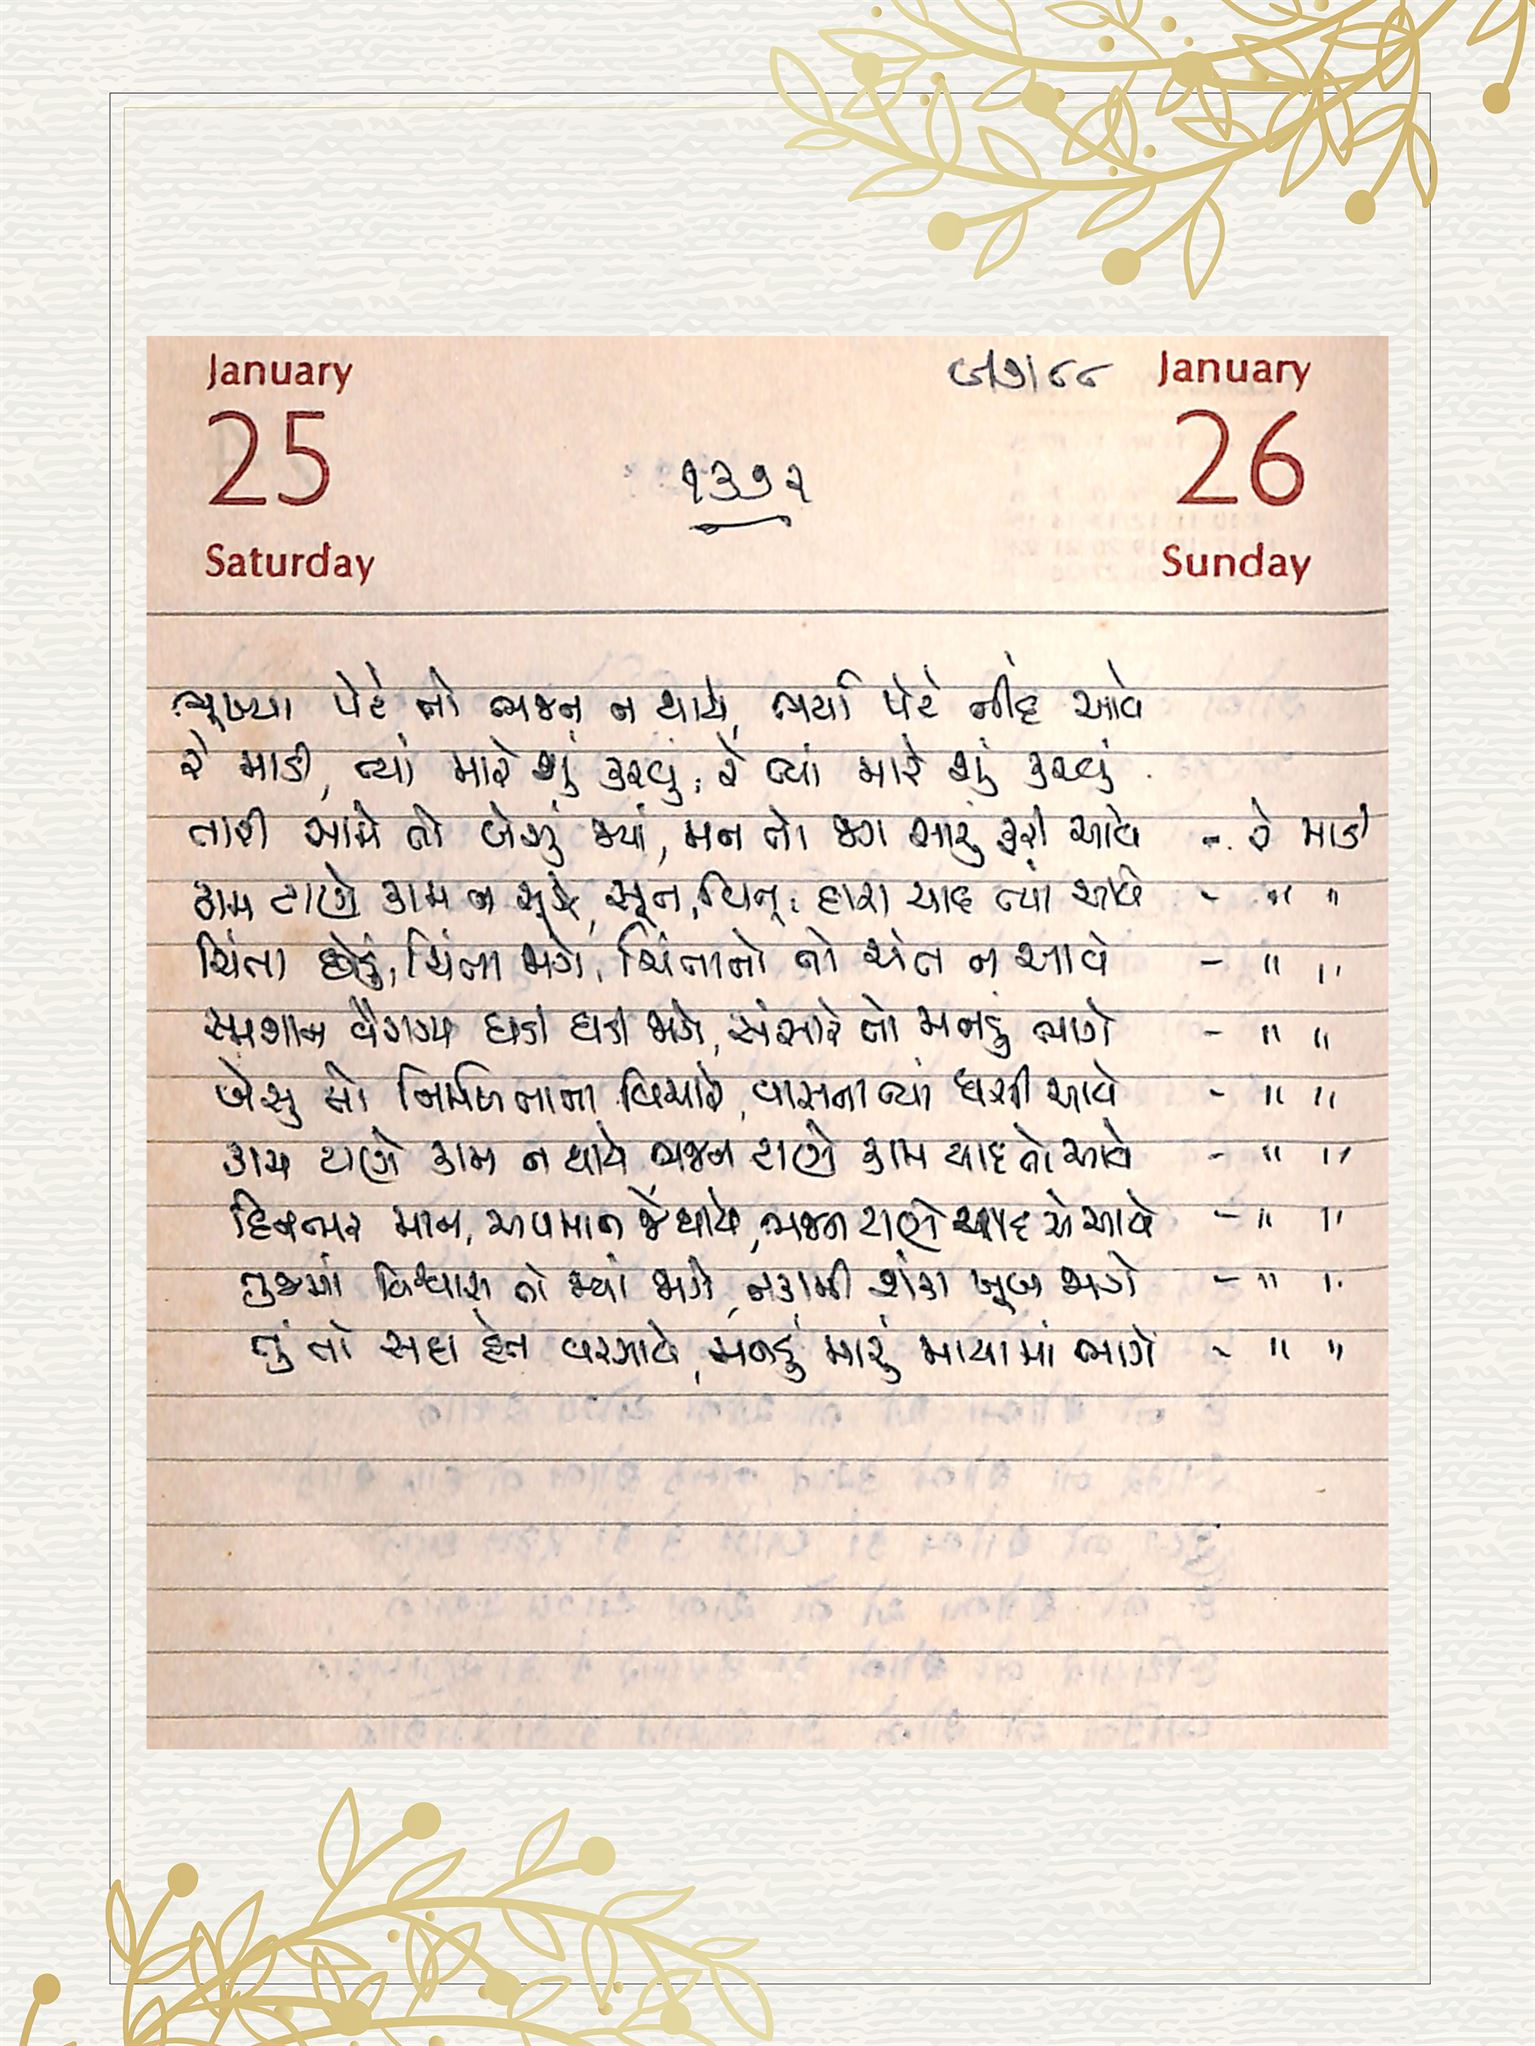 January
25
Saturday
૧૩૭૨
January
26
Sunday
ભૂખ્યા પેટે તો ભજન ન થાયે, ભર્યા પેટે નીંદ આવે
રે માડી, ત્યાં મારે શું કરવું, રે ત્યાં મારે શું કરવું
તારી સામે તો બેસું જ્યાં, મન તો જગ સારું ફરી આવે - રે માડી
કામ ટાણે કામ ન સૂઝે, સૂના, તારી યાદ ત્યાં આવે - " "
ચિંતા છોડું, ચિંતા જાગે, ચિંતાનો તો અંત ન આવે - " "
સ્મશાન વૈરાગ્ય ઘડી ઘડી જાગે, સંસારે તો મનડું ભાગે - " "
બેસું તો નિર્મળતાના વિચારે, વાસના ત્યાં ધસી આવે - " "
કામ ટાણે કામ ન થાયે, ભજન ટાણે કામ યાદ તો આવે - " "
દિનભર માન, અપમાન જે થાયે, ભજન ટાણે યાદ એ આવે - " "
તુજમાં વિશ્વાસ તો જ્યાં જાગે, નકામી શંકા ખૂબ જાગે - " "
તું તો સદા હેત વરસાવે, મનડું મારું માયામાં ભાગે - " "